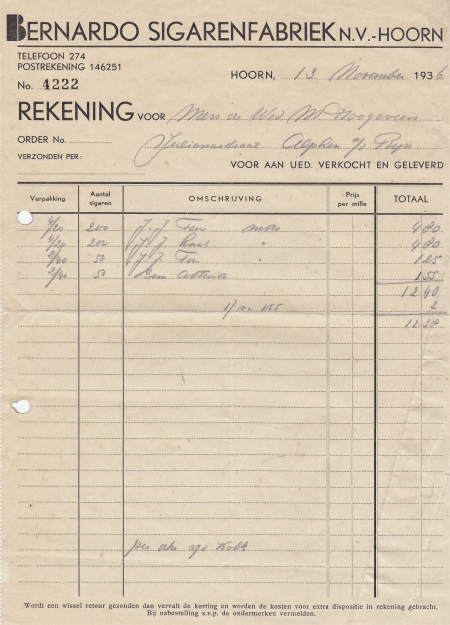 BERNARDO SIGARENFABRIEK N.V.-HOORN
TELEFOON 274
POSTREKENING 146251
No. 4222
HOORN, 13 November 1936
REKENING VOOR Mevr de Wed M Hoogeveen
ORDER No.
Julianastraat Alphen a/d Rijn
VERZONDEN PER:
VOOR AAN UED. VERKOCHT EN GELEVERD
Verpakking Aantal sigaren OMSCHRIJVING Prijs per mille TOTAAL
4/20 200 J. J. 4 90
4/20 200 J. J. " 4 90
2/40 50 J. J. " 1 25
2/40 50 1 55
12 40
2
12 38
per
Wordt een wissel retour gezonden dan vervalt de korting en worden de kosten voor extra dispositie in rekening gebracht.
Bij nabestelling s.v.p. de ondermerken vermelden.